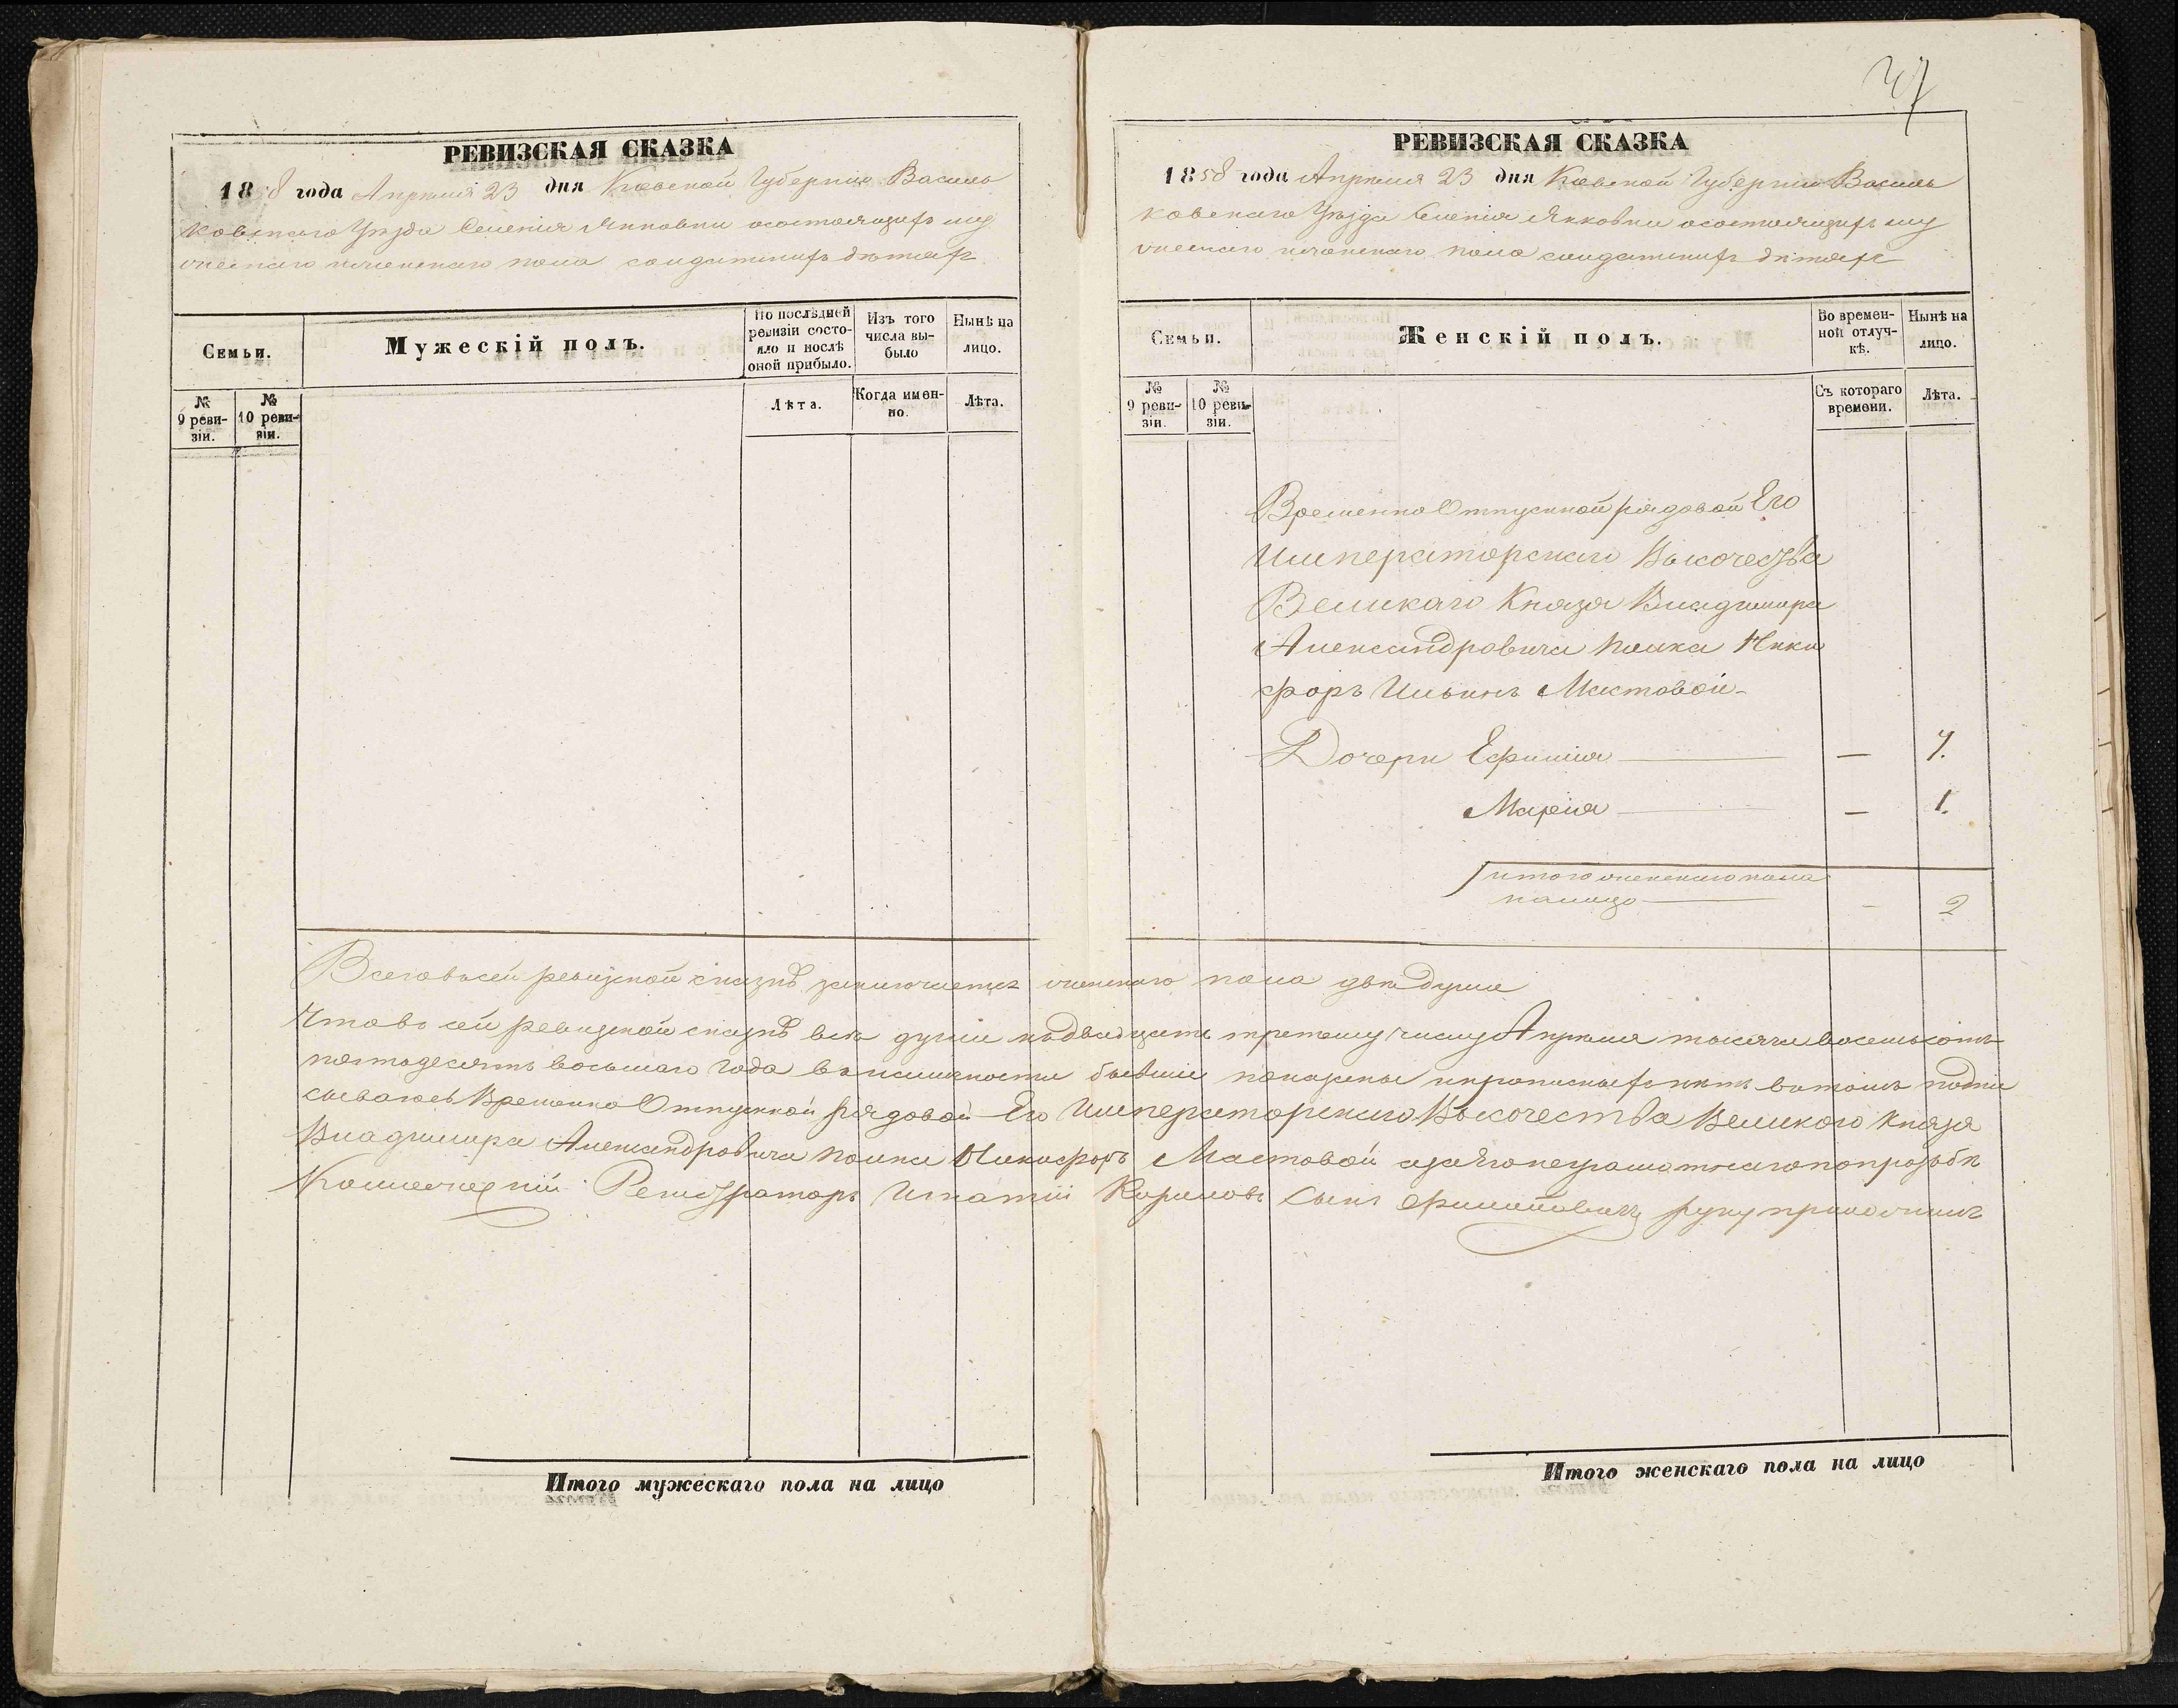 РЕВИЗСКАЯ СКАЗКА
1858 года Апрѣля 23 дня Кіевской Губерніи Василь
ковскаго Уѣзда Селенія Янковки осостоящихъ му
жескаго иженскаго пола солдатскихъ дѣтяхъ
Семьи.
Мужескій полъ.
По послѣдней
ревизіи состо-
яло и послѣ
оной прибыло.
Изъ того
числа вы-
было
Нынѣ на
лицо.
№
9 реви-
зіи.
№
10 реви-
зіи.
Лѣта.
Когда имен-
но.
Лѣта.
Итого мужескаго пола на лицо
РЕВИЗСКАЯ СКАЗКА
1858 года Апрѣля 23 дня Кіевской Губерніи Василь
ковскаго Уѣзда Селенія Янковки осостоящихъ му
жескаго иженскаго пола солдатскихъ дѣтяхъ
Семьи.
Женскій полъ.
Во времен-
ной отлуч-
кѣ.
Нынѣ на
лицо.
№
9 реви-
зіи.
№
10 реви-
зіи.
Съ котораго
времени.
Лѣта.
Временно Отпускной рядовой Его
Императорскаго Высочества
Великаго Князя Владимира
Александровича полка Ники
форъ Ильинъ Мастовой
Дочери Ефимія — 7.
Марія — 1.
итого женскаго пола
налицо — 2
Всего въ сей ревизской сказкѣ заключается женскаго пола двѣ души
Что во сей ревизской сказкѣ всѣ души къ двадцать третему числу Апрѣля тысяча восемьсотъ
пятьдесятъ восьмаго года въ наличности бывшіе показаны ипрописныхъ нѣтъ въ томъ подпи
сываюсь Временно Отпускной рядовой Его Императорскаго Высочества Великого Князя
Владимира Александровича полка Никифоръ Мастовой азаего неграмотнаго попрозьбѣ
Коллежскій Регистраторъ Игнатій Кириловъ сынъ Филиповичъ руку приложилъ
Итого женскаго пола на лицо